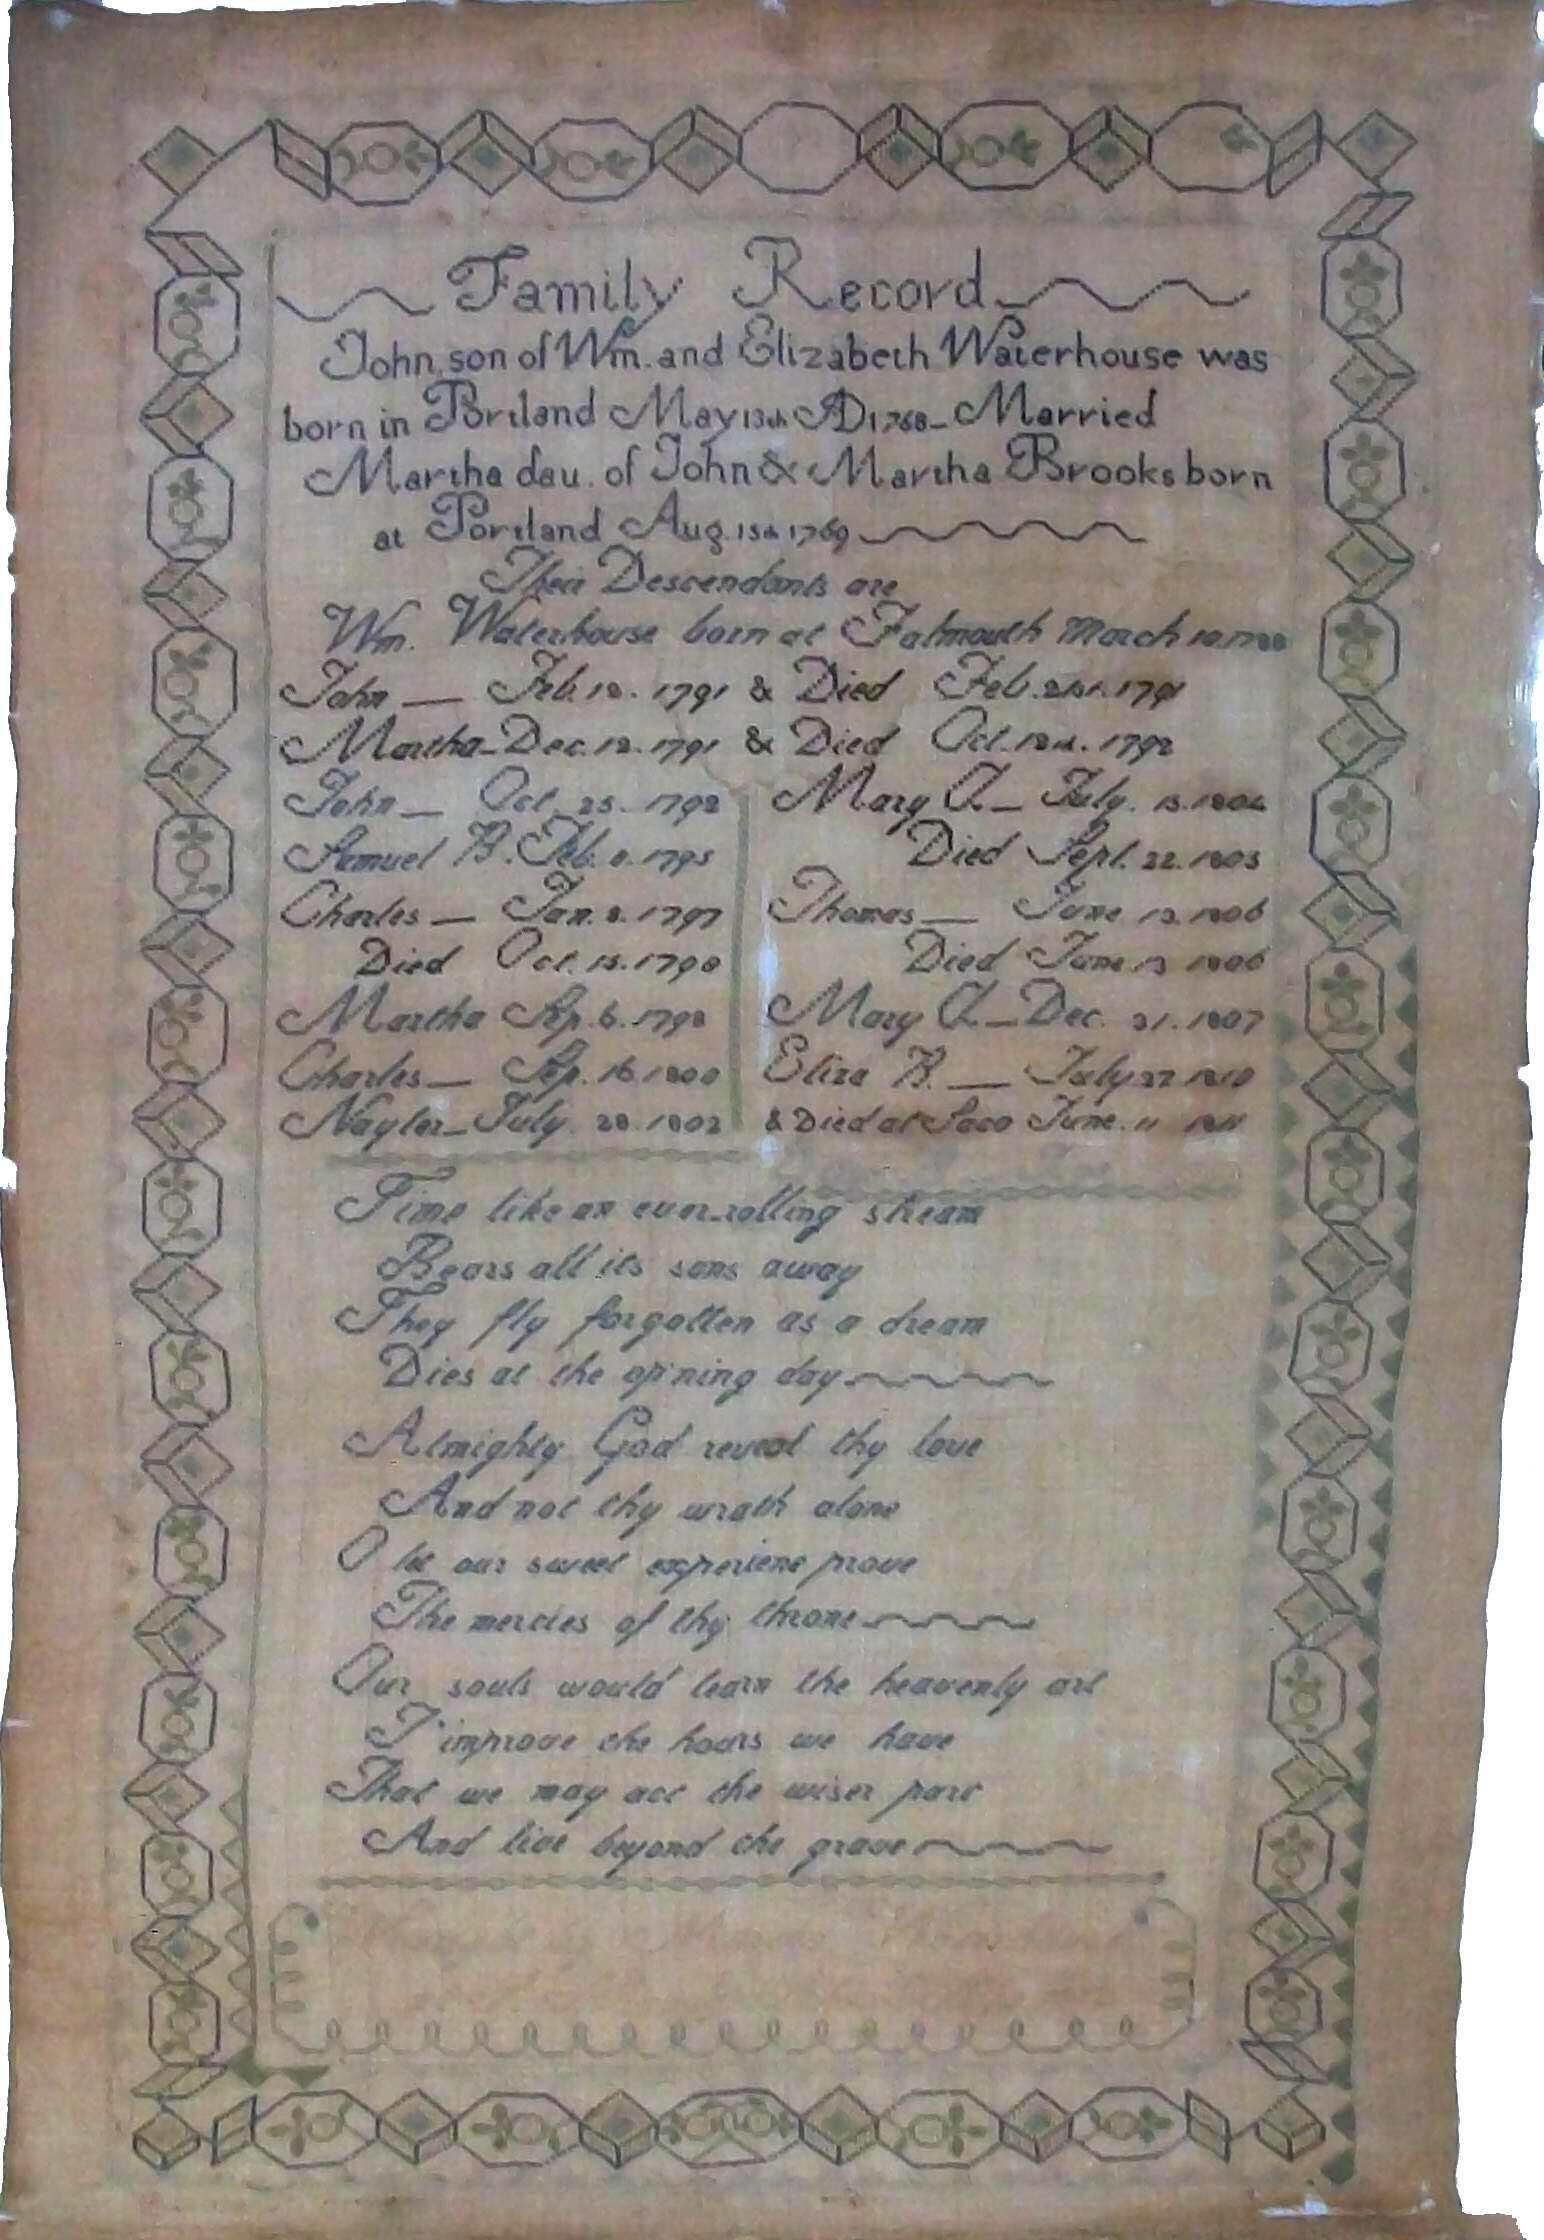 Family Record
John, son of Wm. and Elizabeth Waterhouse was
born in Portland May 13th AD 1768 - Married
Martha dau. of John & Martha Brooks born
at Portland Aug. 15th 1769
Their Descendants are
Wm. Waterhouse born at Falmouth March 10.
John — Feb. 12. 1791 & Died Feb. 21st. 1791
Martha - Dec. 12. 1791 & Died Oct. 12th. 1792
John — Oct 25. 1792
Samuel B. Feb. 8. 1795
Charles — Jan. 8. 1797
Died Oct. 15. 1798
Martha Sep. 6. 1798
Charles — Sep. 16. 1800
Naylor - July. 28. 1802
Mary A. — July. 15. 1804
Died Sept. 22. 1805
Thomas — June 13. 1806
Died June 13 1806
Mary A. — Dec. 31. 1807
Eliza B. — July 27 1810
& Died at Saco June. 11 1811
Time like an ever-rolling stream
Bears all its sons away
They fly forgotten as a dream
Dies at the op'ning day
Almighty God reveal thy love
And not thy wrath alone
O let our sweet experiene prove
The mercies of thy throne
Our souls would learn the heavenly art
T'improve the hours we have
That we may act the wiser part
And live beyond the grave